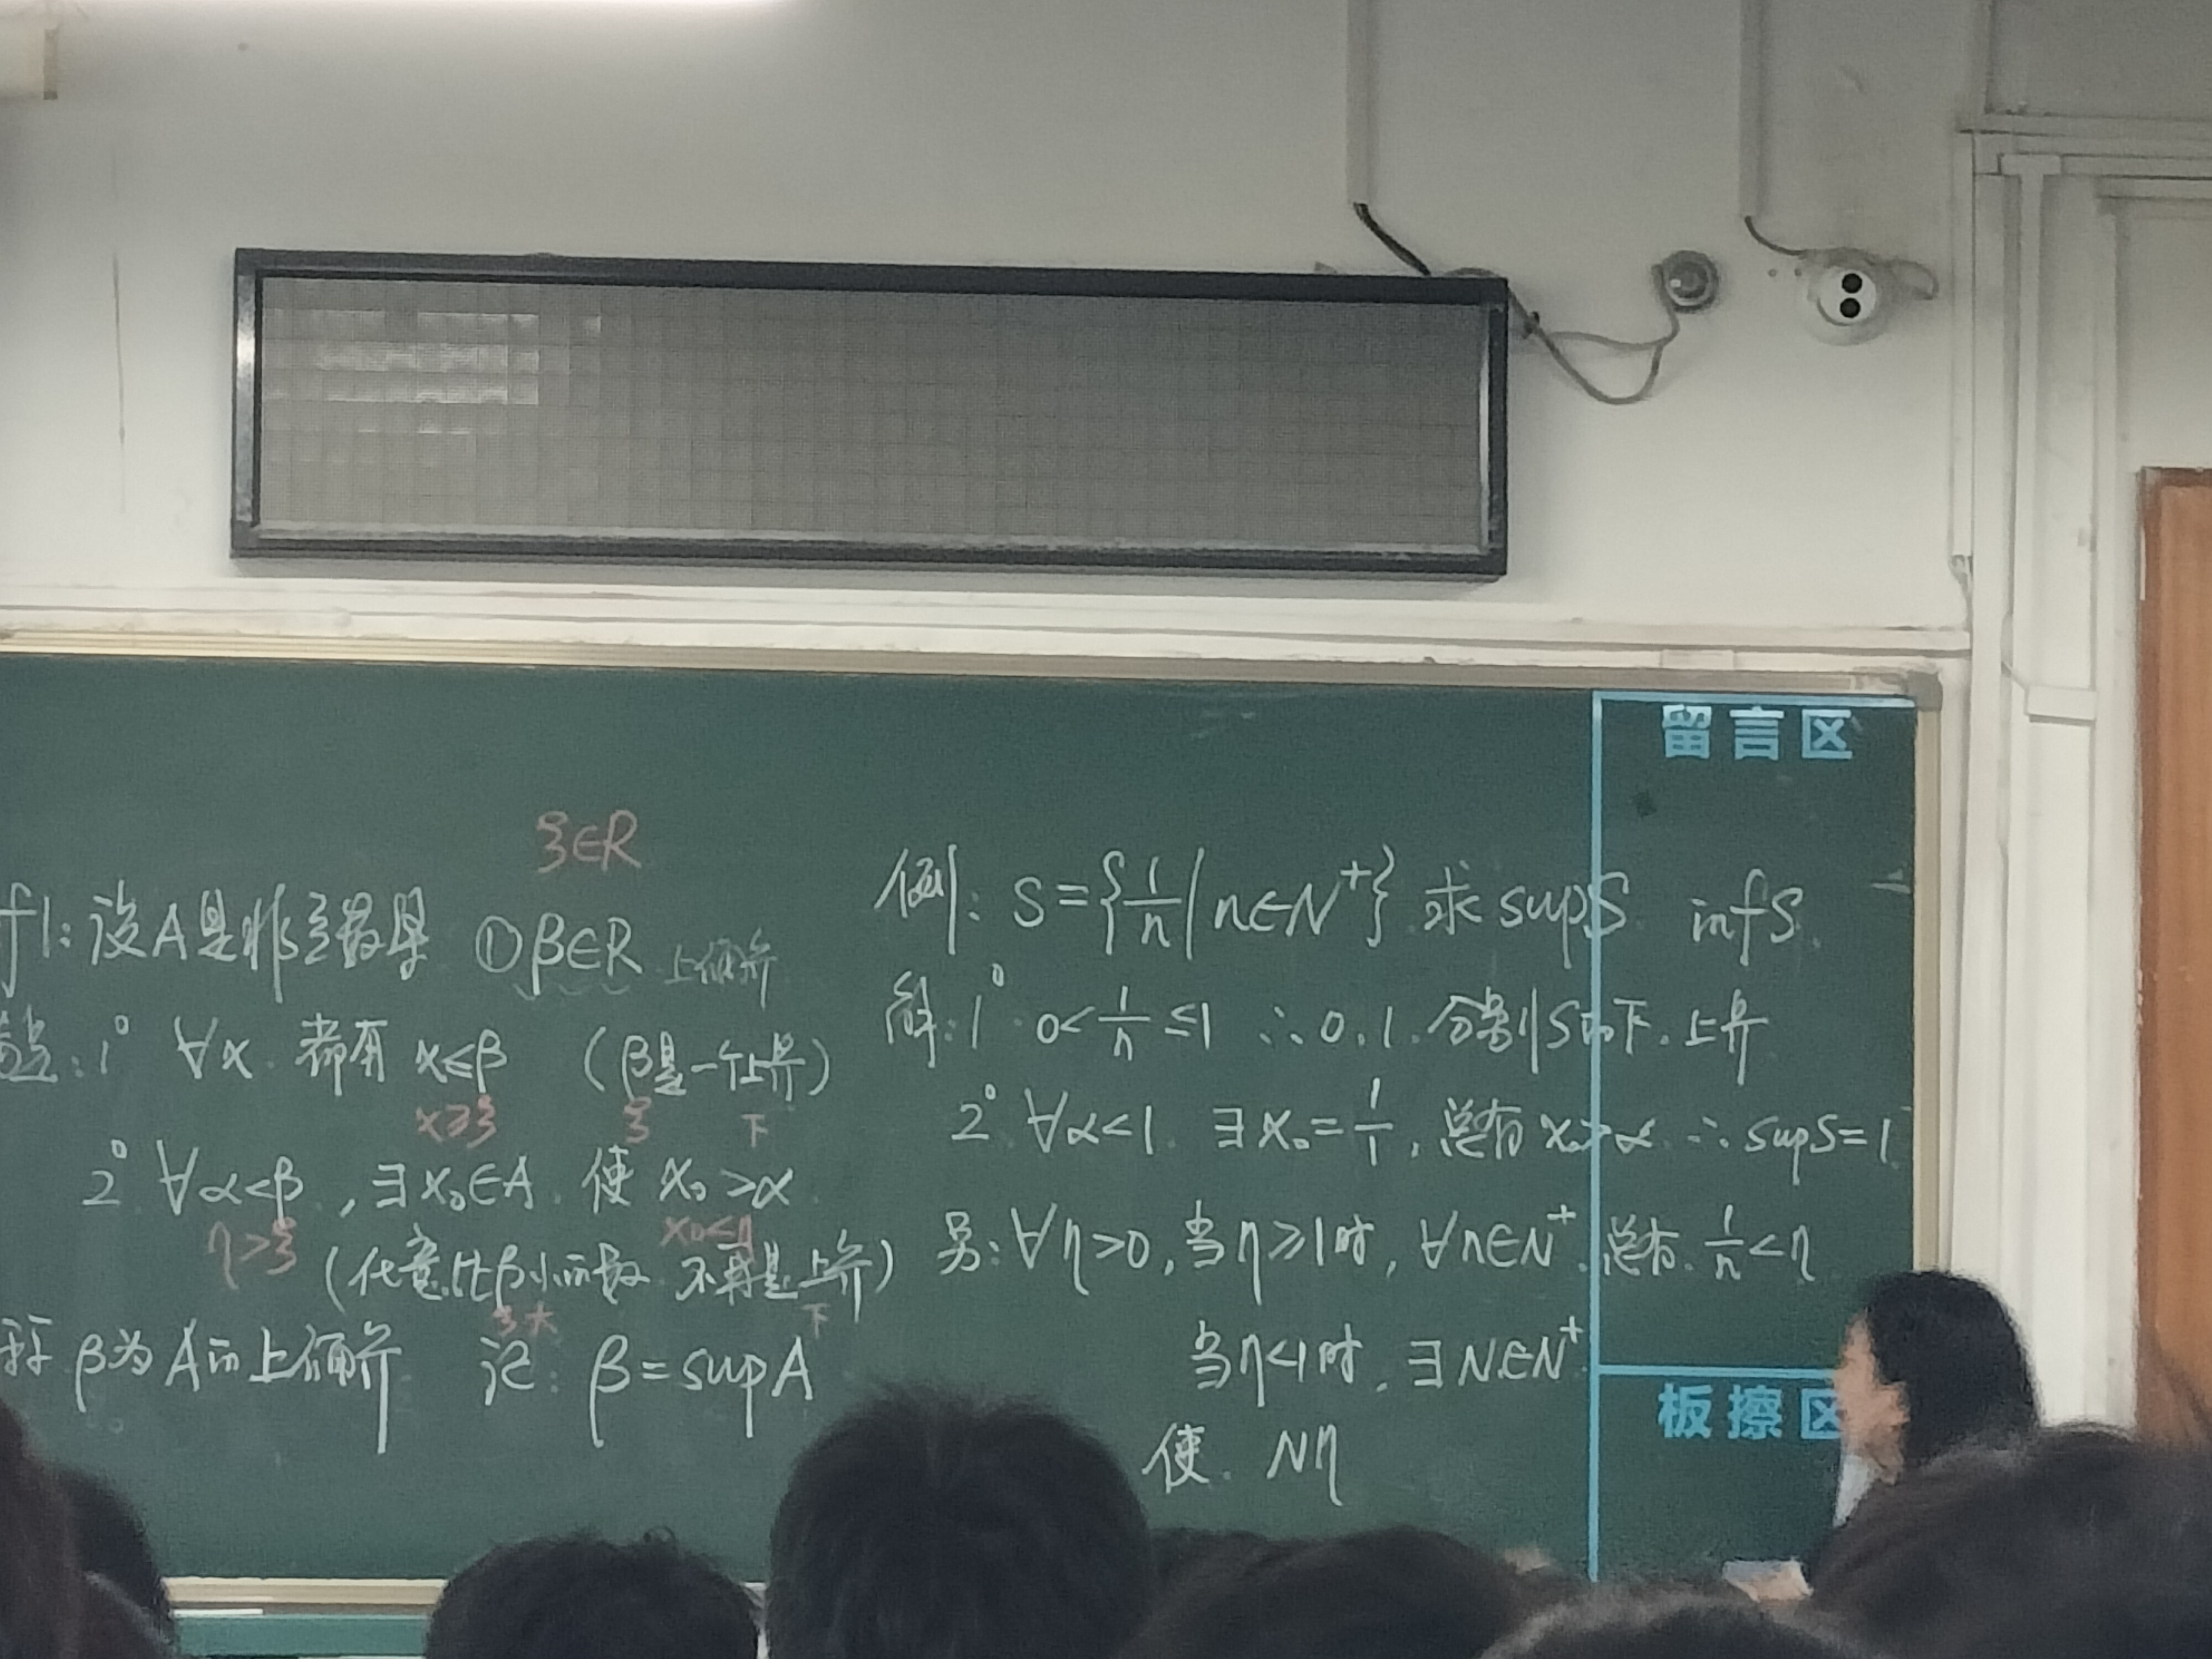 ξ∈R
f1: 设A是非空数集 ①β∈R 上确界
满足: 1° ∀x 都有 x≤β (β是一个上界)
x≥ξ ξ 下
2° ∀α<β, ∃x₀∈A 使 x₀>α
η>ξ x₀<η
(任意比β小的数 不再是上界)
ξ大 下
称 β为A的上确界 记: β=supA
例: S={1/n|n∈N⁺} 求 supS infS.
解: 1° 0<1/n≤1 ∴0.1.分别S的下.上界
2° ∀α<1 ∃x₀=1/1, 总有 x₀>α ∴supS=1
另: ∀η>0, 当η≥1时, ∀n∈N⁺. 总有. 1/n<η
当η<1时. ∃N∈N⁺
使. Nη
留言区
板擦区